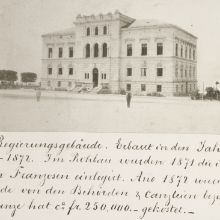 Regierungsgebäude. Erbaut in den Jah
– 1872. Im Rohbau wurden 1871 die i
n Franzosen einlogirt. Ano 1872 wur
de von den Behörden & Canzleien bez
anze hat cᵃ fr. 250,000.– gekostet.–